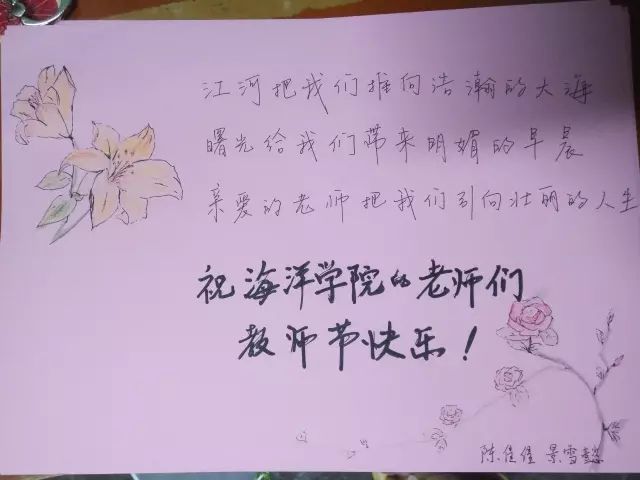 江河把我们推向浩瀚的大海
曙光给我们带来明媚的早晨
亲爱的老师把我们引向壮丽的人生
祝海洋学院的老师们
教师节快乐！
陈佳佳 景雪懿